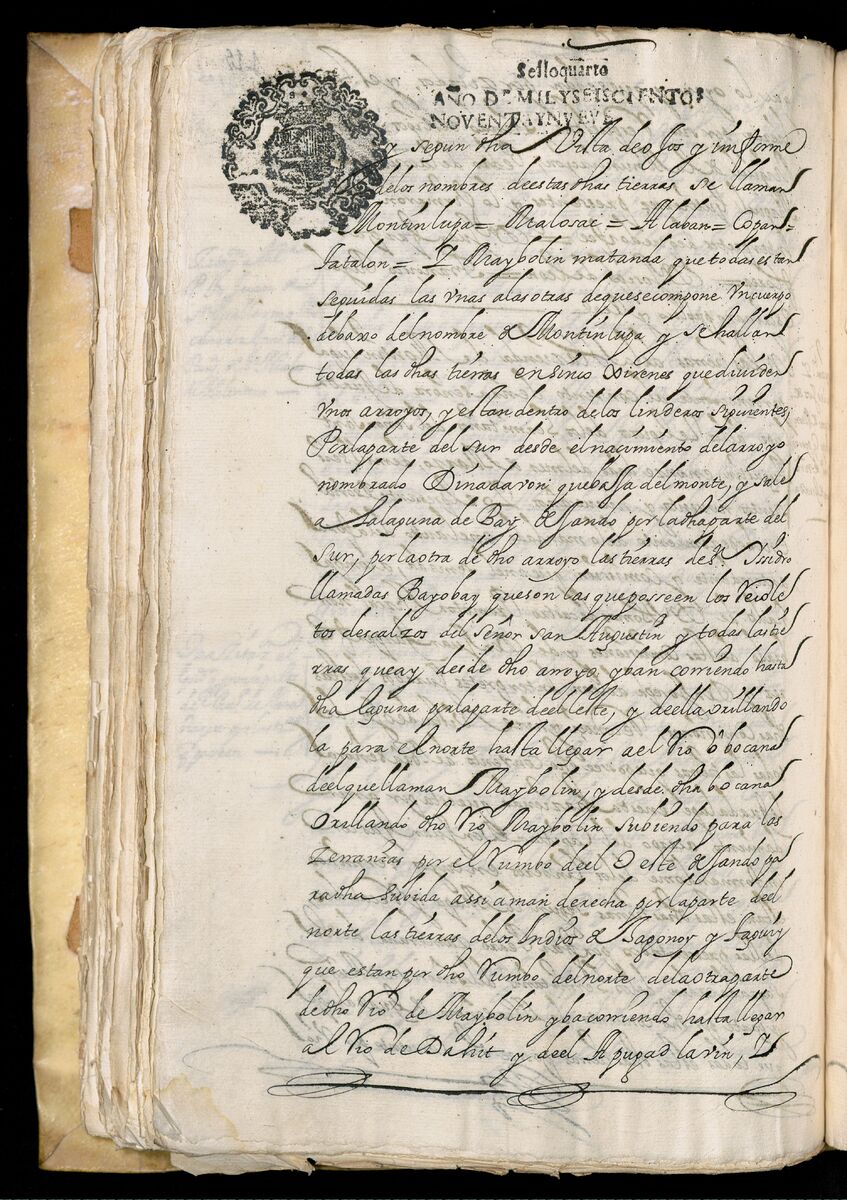 Selloquarto
AÑO DE MILYSEISCIENTOS
NOVENTAYNVEVE
y segun dha Vista deojos y informe
delos nombres deestas dhas tierras se llaman
Montinlupa = Malosac = Alaban = Copan =
Tatalon = Y Maybolin matanda que todas estan
seguidas las vnas alas otras dequesecompone Vn cuerpo
debaxo del nombre de Montinlupa y se hallan
todas las dhas tierras en sinco Xirenes que dividen
Vnos arroyos, y estan dentro de los linderos siguientes;
Por laparte del sur desde el nacimiento del arroyo
nombrado Dinadavon que baja del monte, y sale
a la laguna de Bay dejando por la dha parte del
sur, por la otra de dho arroyo las tierras de Sn Isidro
llamadas Bayobay que son las que posseen los Recole
tos descalzos del señor san Augustin y todas las tie
rras que ay desde dho arroyo yban corriendo hasta
dha laguna por laparte deel leste, y deella orillando
la para el norte hasta llegar a el Rio o bocana
deel que llaman Maybolin, y desde dha bocana
orillando dho Rio Maybolin subiendo para las
Zerranias por el Rumbo deel Oeste dejando pa
radha subida assi a man derecha por laparte deel
norte las tierras delos Indios de Bagonor y Taguig
que estan por dho Rumbo del norte dela otra parte
de dho Rio de Maybolin y ba corriendo hasta llegar
al Rio de Dahit y deel Apugad lavin, Y